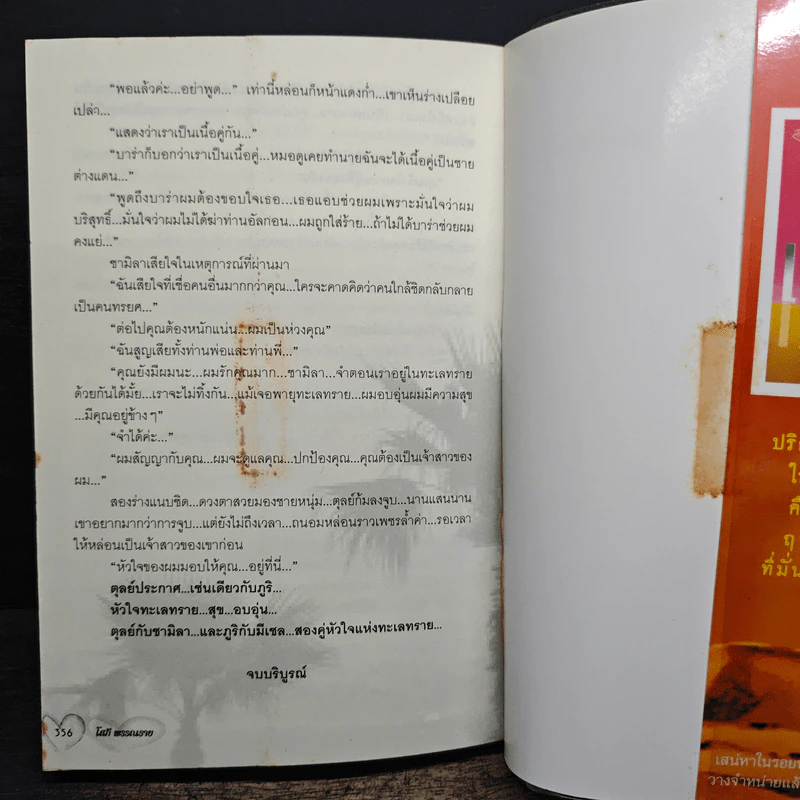 “พอแล้วค่ะ...อย่าพูด...” เท่านี้หล่อนก็หน้าแดงก่ำ...เขาเห็นร่างเปลือย
เปล่า...
“แสดงว่าเราเป็นเนื้อคู่กัน...”
“บาร่าก็บอกว่าเราเป็นเนื้อคู่...หมอดูเคยทำนายฉันจะได้เนื้อคู่เป็นชาย
ต่างแดน...”
“พูดถึงบาร่าผมต้องขอบใจเธอ...เธอแอบช่วยผมเพราะมั่นใจว่าผม
บริสุทธิ์...มั่นใจว่าผมไม่ได้ฆ่าท่านอัลกอน...ผมถูกใส่ร้าย...ถ้าไม่ได้บาร่าช่วยผม
คงแย่...”
ซามิลาเสียใจในเหตุการณ์ที่ผ่านมา
“ฉันเสียใจที่เชื่อคนอื่นมากกว่าคุณ...ใครจะคาดคิดว่าคนใกล้ชิดกลับกลาย
เป็นคนทรยศ...”
“ต่อไปคุณต้องหนักแน่น...ผมเป็นห่วงคุณ”
“ฉันสูญเสียทั้งท่านพ่อและท่านพี่...”
“คุณยังมีผมนะ...ผมรักคุณมาก...ซามิลา...จำตอนเราอยู่ในทะเลทราย
ด้วยกันได้มั้ย...เราจะไม่ทิ้งกัน...แม้เจอพายุทะเลทราย...ผมอบอุ่นผมมีความสุข
...มีคุณอยู่ข้างๆ”
“จำได้ค่ะ...”
“ผมสัญญากับคุณ...ผมจะดูแลคุณ...ปกป้องคุณ...คุณต้องเป็นเจ้าสาวของ
ผม...”
สองร่างแนบชิด...ดวงตาสวยมองชายหนุ่ม...ตุลย์ก้มลงจูบ...นานแสนนาน
เขาอยากมากกว่าการจูบ...แต่ยังไม่ถึงเวลา...ถนอมหล่อนราวเพชรล้ำค่า...รอเวลา
ให้หล่อนเป็นเจ้าสาวของเขาก่อน
“หัวใจของผมมอบให้คุณ...อยู่ที่นี่...”
ตุลย์ประกาศ...เช่นเดียวกับภูริ...
หัวใจทะเลทราย...สุข...อบอุ่น...
ตุลย์กับซามิลา...และภูริกับมีเซล...สองคู่หัวใจแห่งทะเลทราย...
จบบริบูรณ์
356 โสภี พรรณราย
ที่มั่น
เสน่หาในรอย
วางจำหน่ายแล้